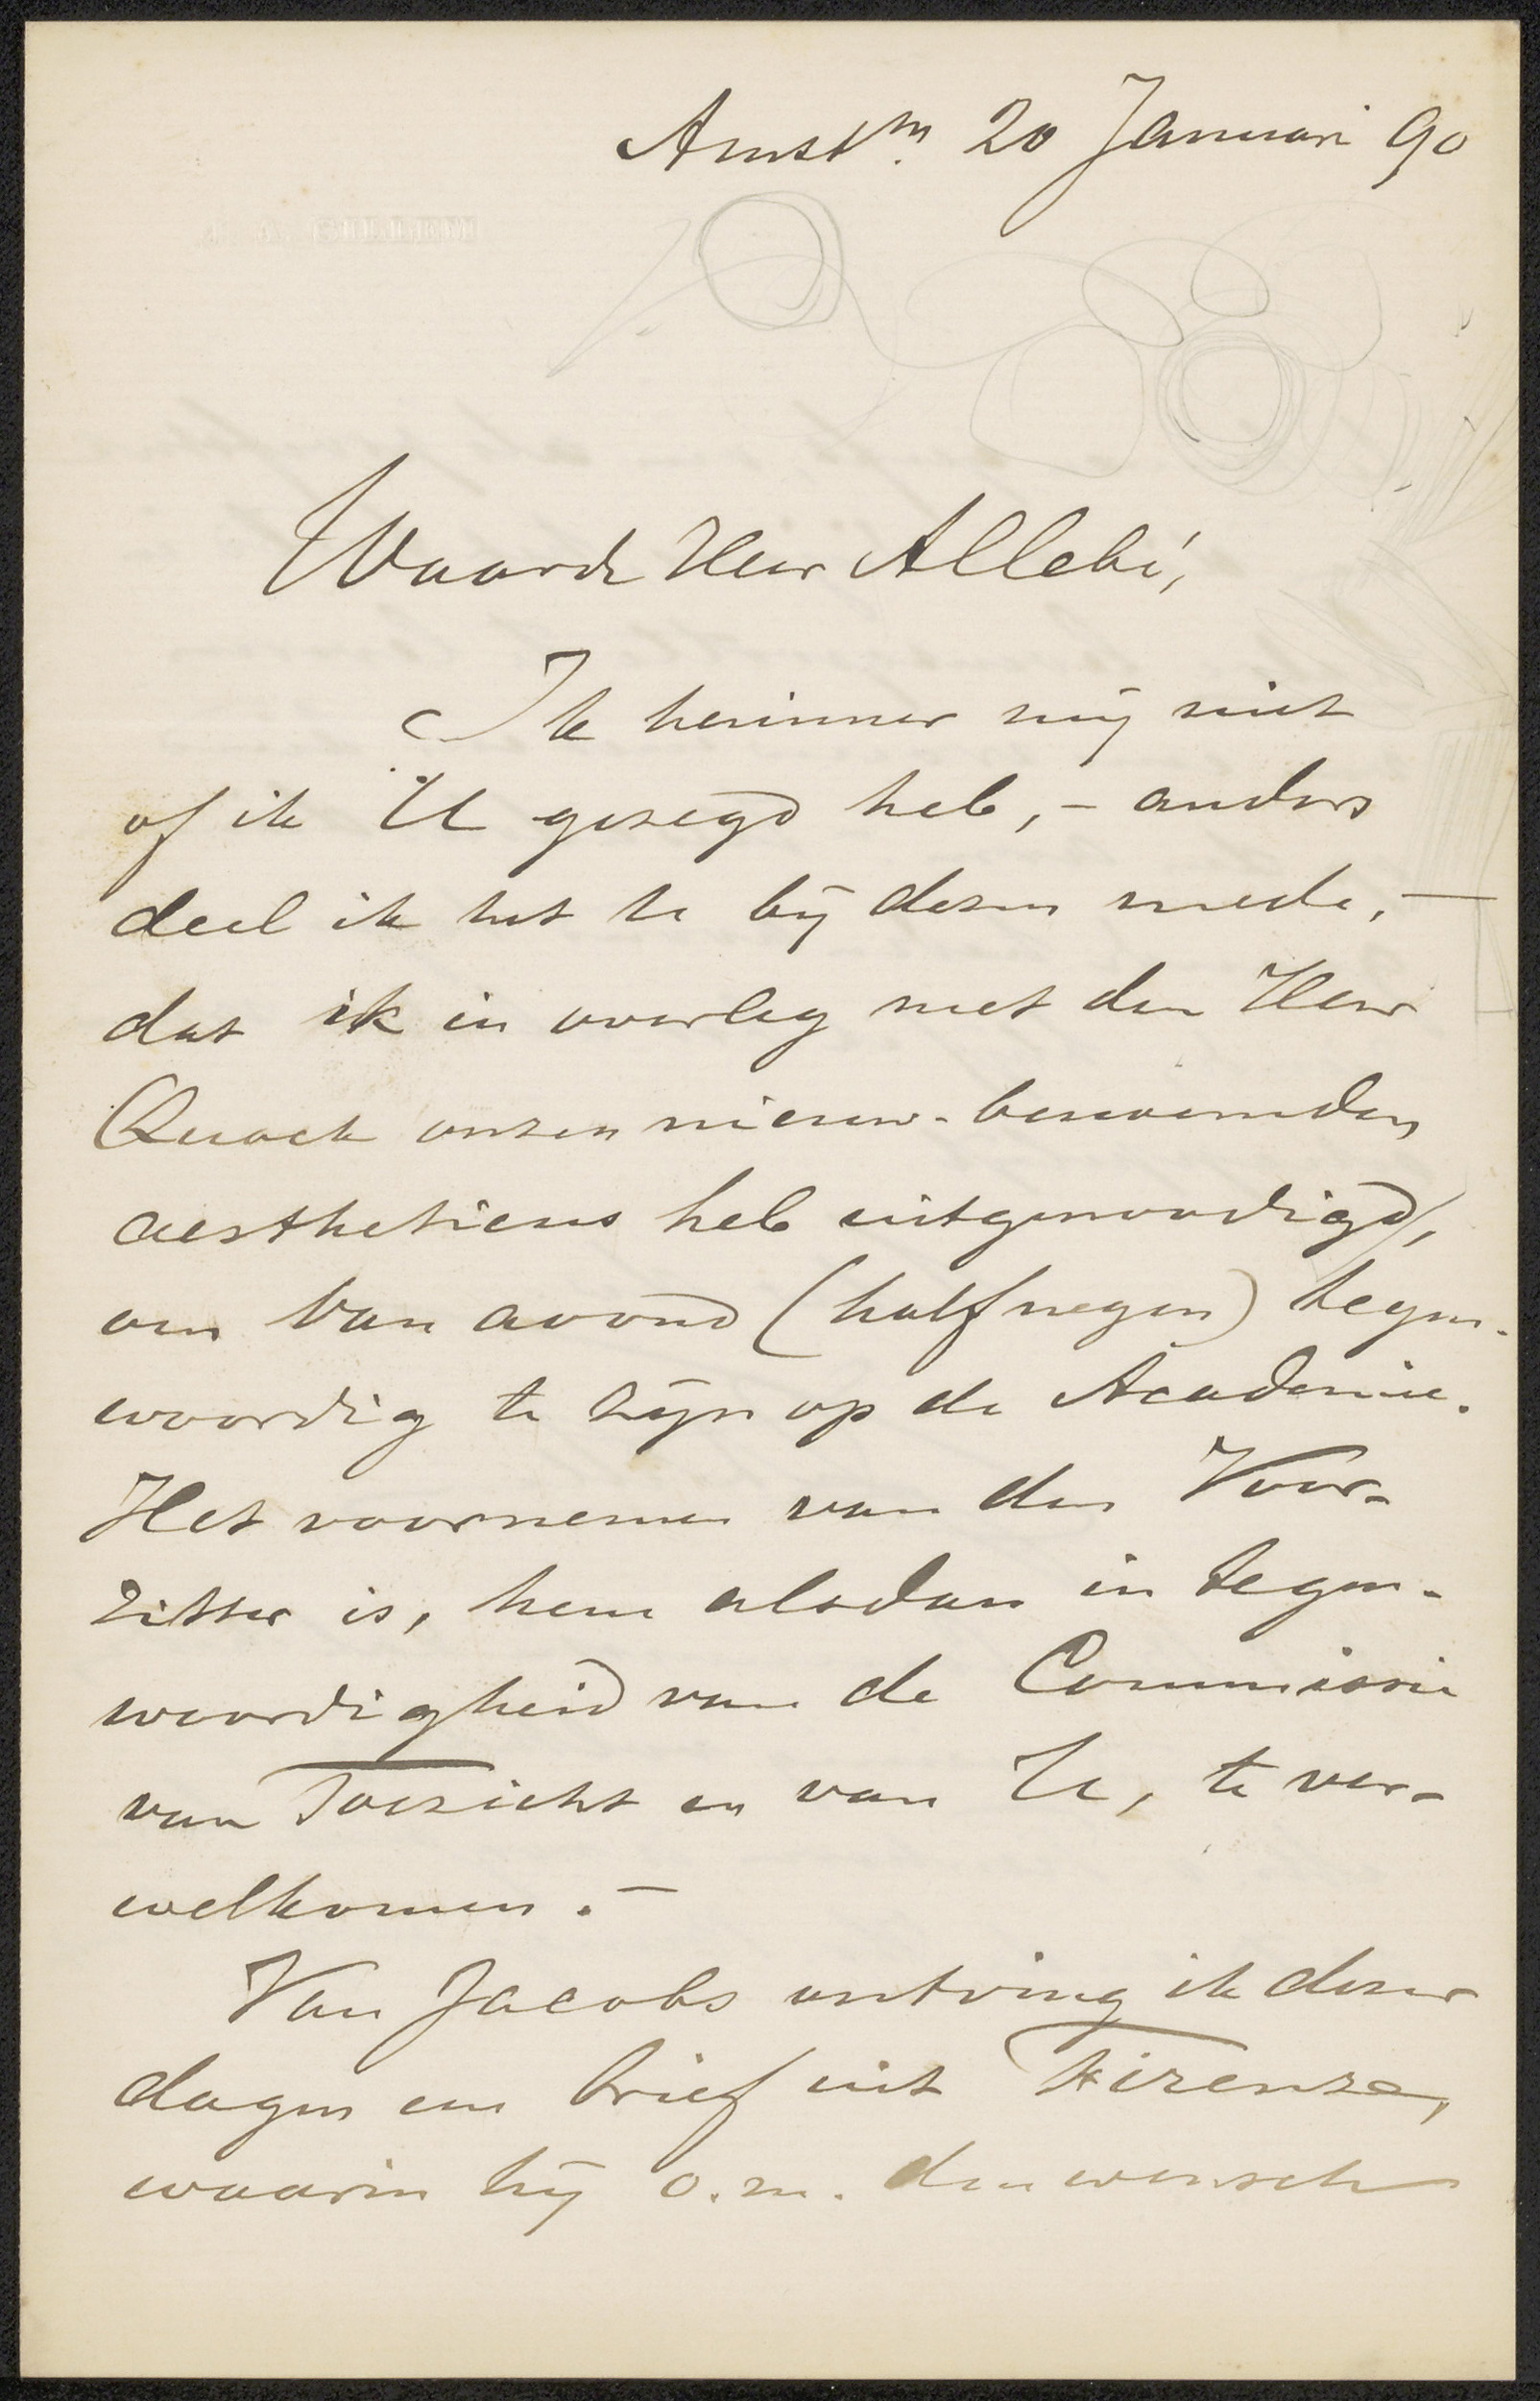 Amstm. 20 Januari 90
Waarde Heer Allebé,
Ik herinner mij niet
of ik U gezegd heb, – anders
deel ik het U bij dezen mede, –
dat ik in overleg met den Heer
Quack onzen nieuw-benoemden
aestheticus heb uitgenoodigd,
om van avond (half negen) tegen-
woordig te zijn op de Academie.
Het voornemen van den Voor-
zitter is, hem alsdan in tegen-
woordigheid van de Commissie
van Toezicht en van U, te ver-
welkomen. –
Van Jacobs ontving ik dezer
dagen een brief uit Firenze,
waarin hij o.m. den wensch